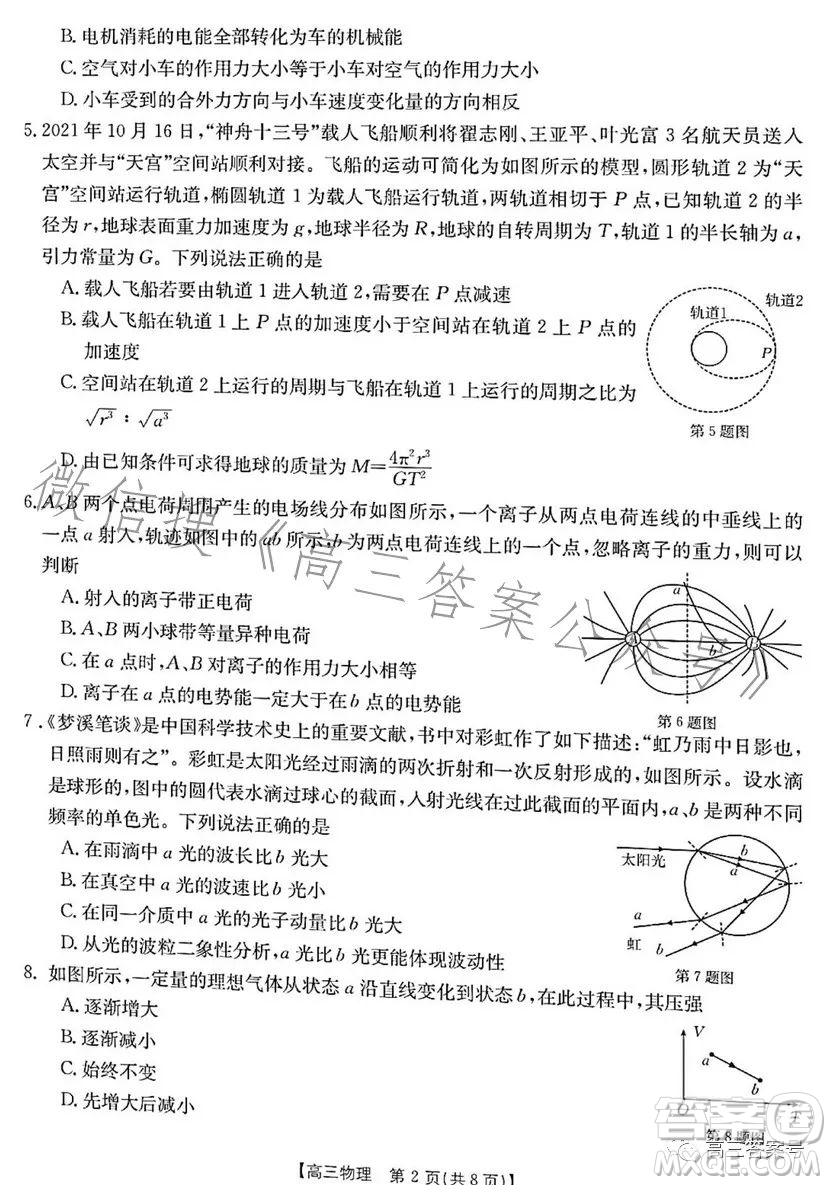 B. 电机消耗的电能全部转化为车的机械能
C. 空气对小车的作用力大小等于小车对空气的作用力大小
D. 小车受到的合外力方向与小车速度变化量的方向相反
5. 2021 年 10 月 16 日,“神舟十三号”载人飞船顺利将翟志刚、王亚平、叶光富 3 名航天员送入
太空并与“天宫”空间站顺利对接。飞船的运动可简化为如图所示的模型,圆形轨道 2 为“天
宫”空间站运行轨道,椭圆轨道 1 为载人飞船运行轨道,两轨道相切于 P 点,已知轨道 2 的半
径为 r,地球表面重力加速度为 g,地球半径为 R,地球的自转周期为 T,轨道 1 的半长轴为 a,
引力常量为 G。下列说法正确的是
A. 载人飞船若要由轨道 1 进入轨道 2,需要在 P 点减速
B. 载人飞船在轨道 1 上 P 点的加速度小于空间站在轨道 2 上 P 点的
加速度
C. 空间站在轨道 2 上运行的周期与飞船在轨道 1 上运行的周期之比为
√r³ : √a³
D. 由已知条件可求得地球的质量为 M=4π²r³/GT²
轨道1
轨道2
P
第 5 题图
6. A、B 两个点电荷周围产生的电场线分布如图所示,一个离子从两点电荷连线的中垂线上的
一点 a 射入,轨迹如图中的 ab 所示,b 为两点电荷连线上的一个点,忽略离子的重力,则可以
判断
A. 射入的离子带正电荷
B. A、B 两小球带等量异种电荷
C. 在 a 点时,A、B 对离子的作用力大小相等
D. 离子在 a 点的电势能一定大于在 b 点的电势能
a
A
B
b
第 6 题图
7.《梦溪笔谈》是中国科学技术史上的重要文献,书中对彩虹作了如下描述:“虹乃雨中日影也,
日照雨则有之”。彩虹是太阳光经过雨滴的两次折射和一次反射形成的,如图所示。设水滴
是球形的,图中的圆代表水滴过球心的截面,入射光线在过此截面的平面内,a、b 是两种不同
频率的单色光。下列说法正确的是
A. 在雨滴中 a 光的波长比 b 光大
B. 在真空中 a 光的波速比 b 光小
C. 在同一介质中 a 光的光子动量比 b 光大
D. 从光的波粒二象性分析,a 光比 b 光更能体现波动性
太阳光
b
a
a
虹
b
第 7 题图
8. 如图所示,一定量的理想气体从状态 a 沿直线变化到状态 b,在此过程中,其压强
A. 逐渐增大
B. 逐渐减小
C. 始终不变
D. 先增大后减小
V
a
b
O
T
第 8 题图
【高三物理 第 2 页(共 8 页)】
微信搜《高三答案公众号》
高三答案号
答案圈
MXQE.COM